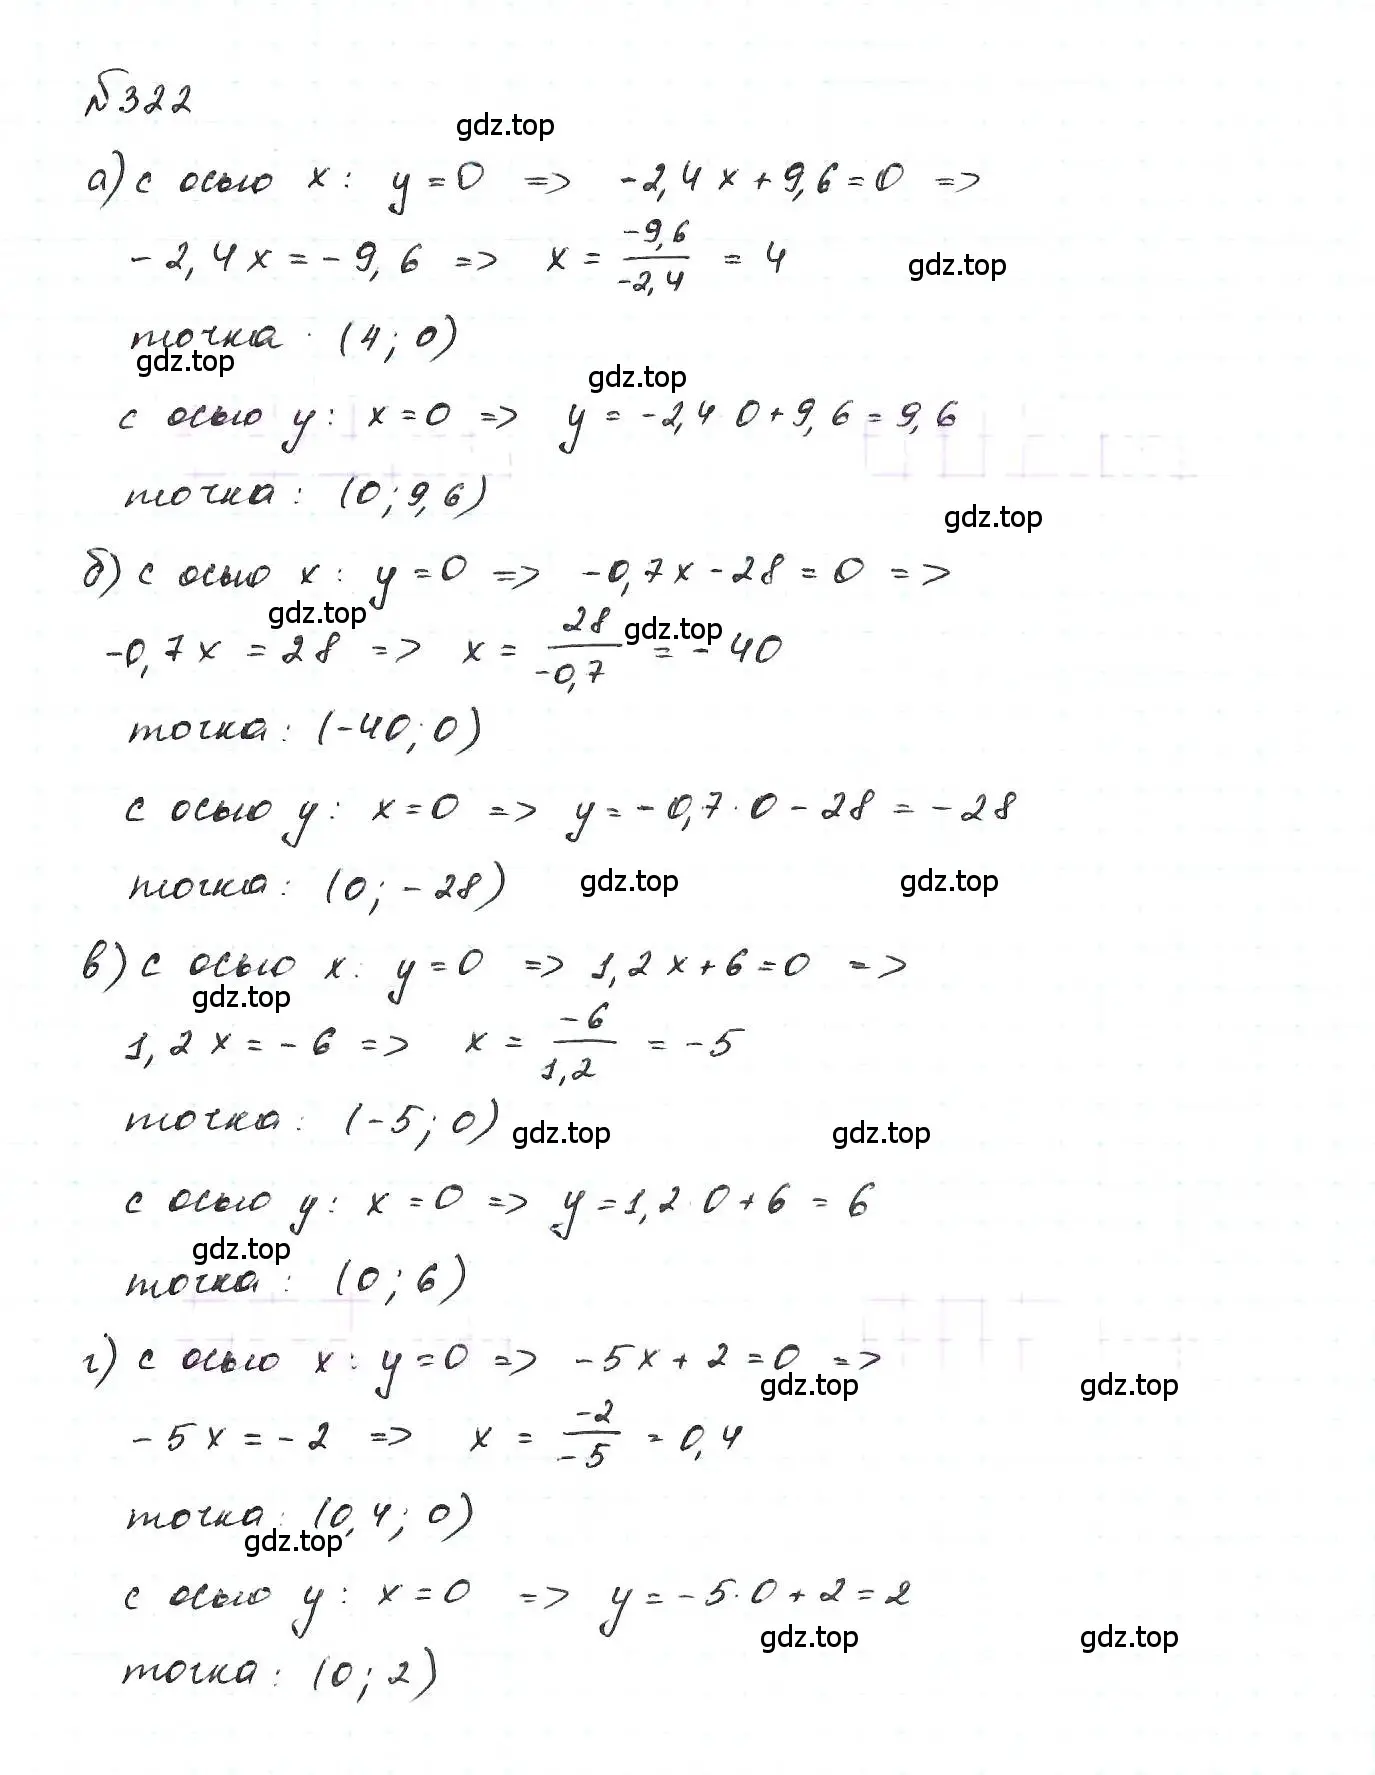 №322
gdz.top
а) с осью x: y=0 => -2,4x+9,6=0 =>
-2,4x=-9,6 => x = -9,6/-2,4 = 4
gdz.top
точка (4; 0)
gdz.top
gdz.top
с осью y: x=0 => y=-2,4·0+9,6=9,6
точка: (0; 9,6)
gdz.top
б) с осью x: y=0 => -0,7x-28=0 =>
gdz.top
gdz.top
-0,7x=28 => x = 28/-0,7 = -40
точка: (-40; 0)
с осью y: x=0 => y=-0,7·0-28=-28
точка: (0; -28)
gdz.top
gdz.top
в) с осью x: y=0 => 1,2x+6=0 =>
gdz.top
1,2x=-6 => x = -6/1,2 = -5
точка: (-5; 0)
gdz.top
gdz.top
с осью y: x=0 => y=1,2·0+6=6
gdz.top
точка: (0; 6)
г) с осью x: y=0 => -5x+2=0 =>
gdz.top
gdz.top
-5x=-2 => x = -2/-5 = 0,4
точка: (0,4; 0)
gdz.top
с осью y: x=0 => y=-5·0+2=2
gdz.top
gdz.top
точка: (0; 2)